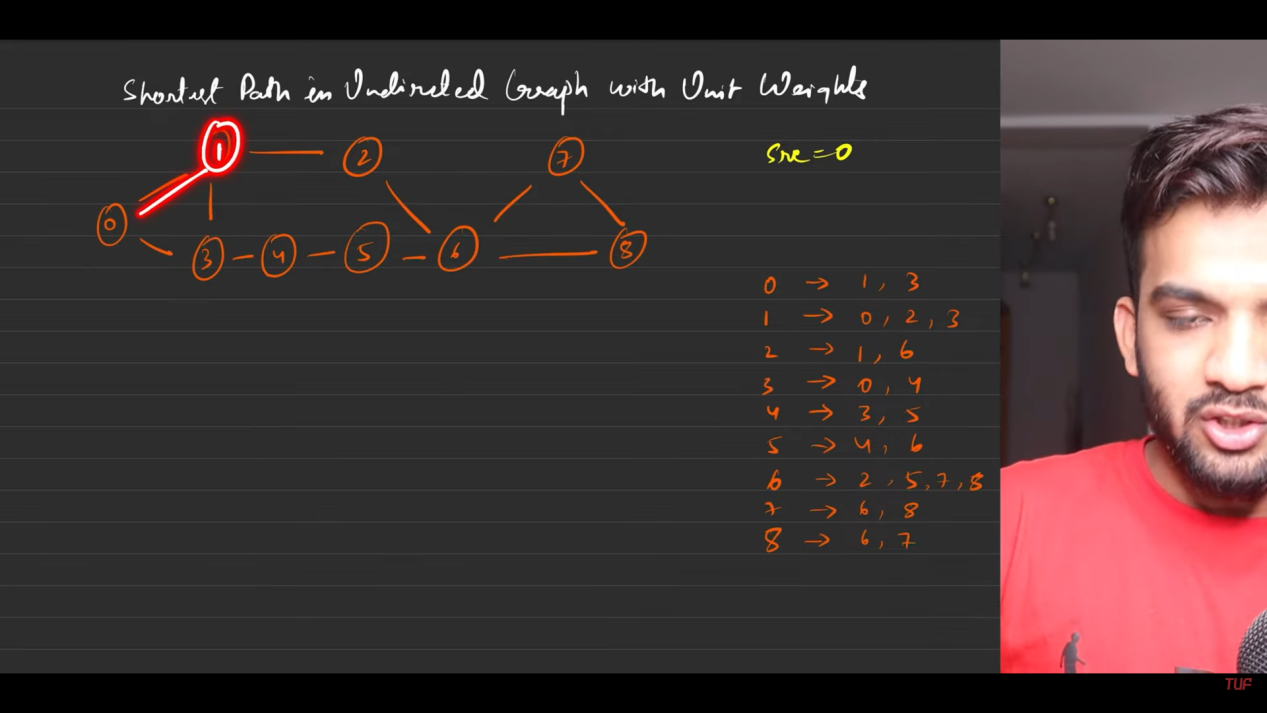 Shortest Path in Undirected Graph with Unit Weights
1 2 7
0
3 4 5 6 8
Src = 0
0 → 1, 3
1 → 0, 2, 3
2 → 1, 6
3 → 0, 4
4 → 3, 5
5 → 4, 6
6 → 2, 5, 7, 8
7 → 6, 8
8 → 6, 7
TUF